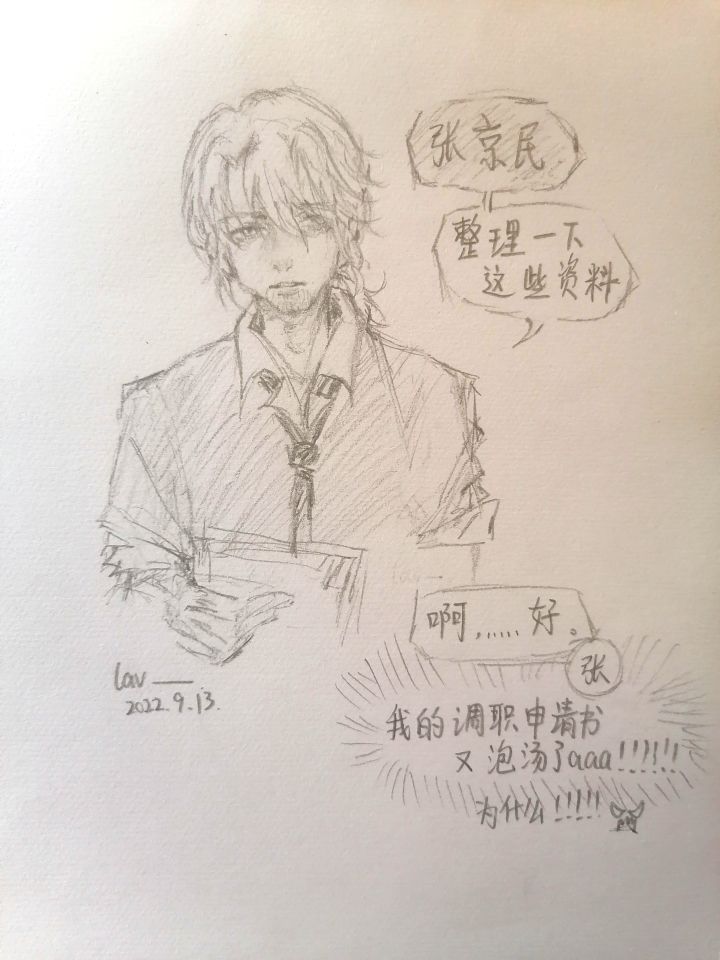 张京民
整理一下
这些资料
啊，……好。
张
我的调职申请书
又泡汤了aaa！！！！！！
为什么！！！！！
lav——
2022.9.13.